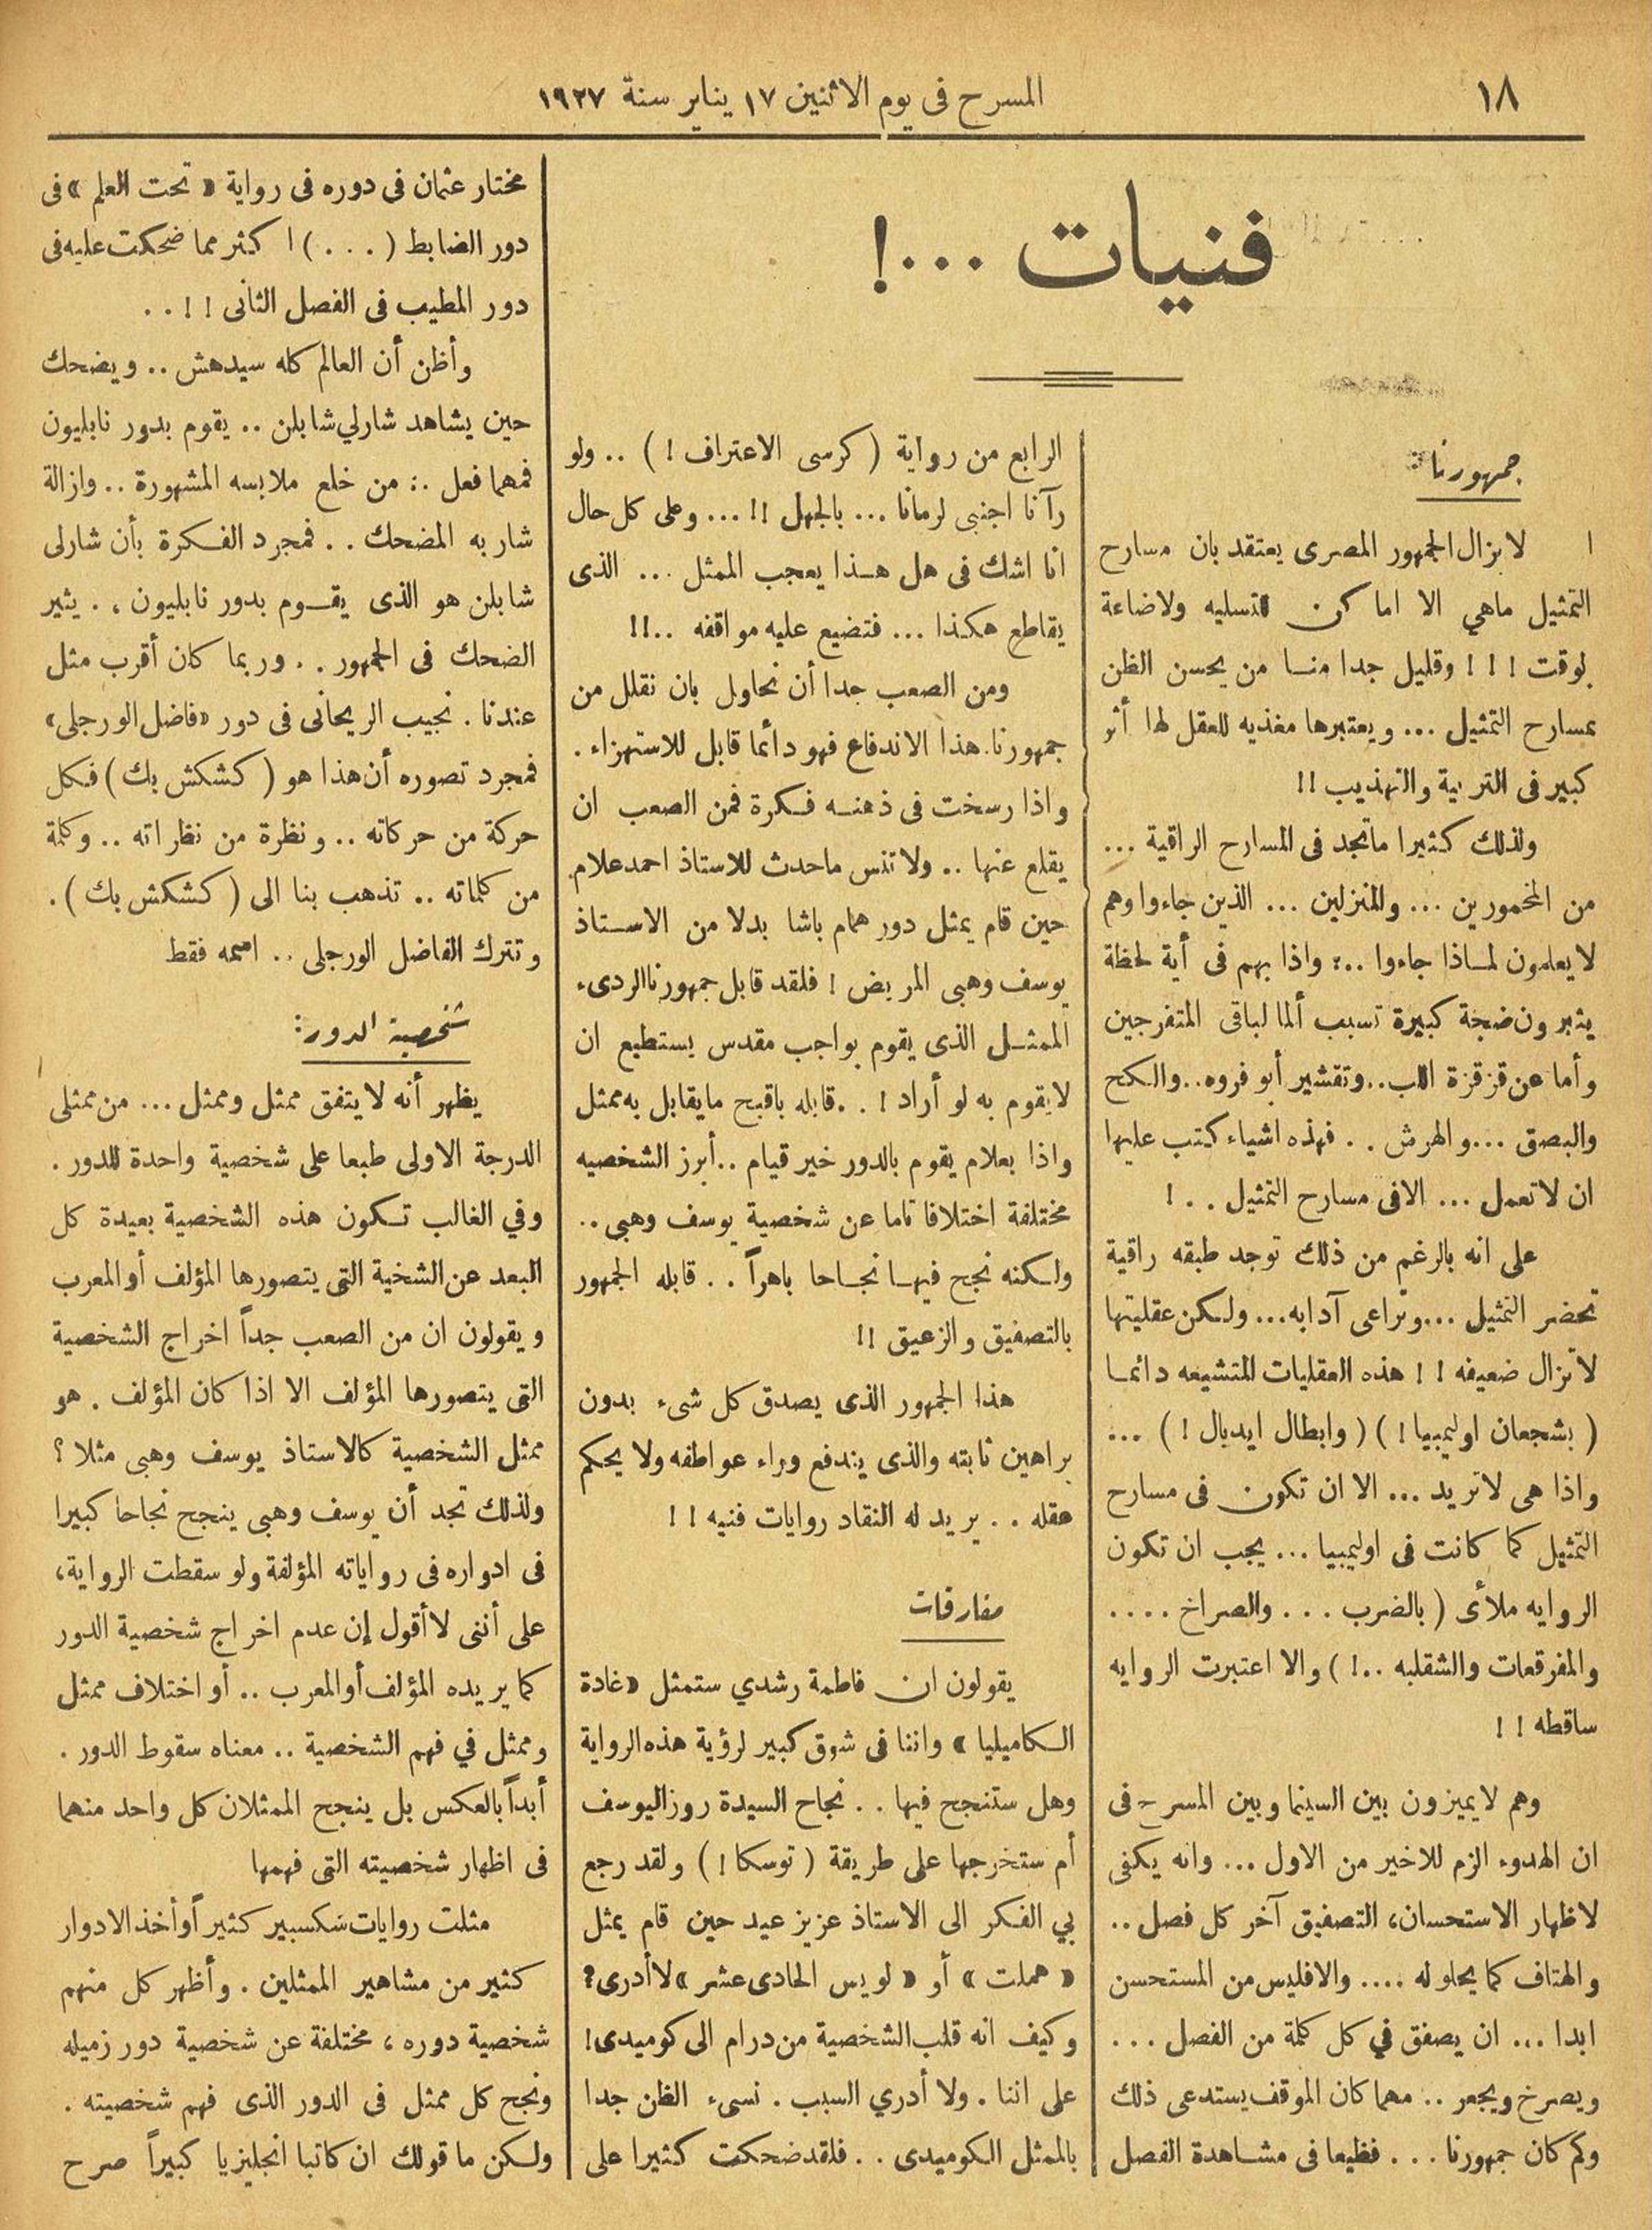 ١٨
المسرح فى يوم الاثنين ١٧ يناير سنة ١٩٢٧
فنيات ...!
جمهورنا:
لا يزال الجمهور المصرى يعتقد بان مسارح
التمثيل ماهي الا اماكن للتسليه ولاضاعة
لوقت ! ! ! وقليل جدا منا من يحسن الظن
بمسارح التمثيل ... ويعتبرها مغذيه للعقل لها أثر
كبير فى التربية والتهذيب !!
ولذلك كثيرا ماتجد فى المسارح الراقية ...
من المخمورين ... والمنزلين ... الذين جاءوا وهم
لا يعلمون لماذا جاءوا ..؛ واذا بهم فى أية لحظة
يثيرون ضجة كبيرة تسبب ألما لباقى المتفرجين
وأما عن قزقزة اللب.. وتقشير أبو فروه.. والكح
والبصق ... والهرش . . فهذه اشياء كتب عليها
ان لا تعمل ... الا فى مسارح التمثيل . . !
على انه بالرغم من ذلك توجد طبقه راقية
تحضر التمثيل ... وتراعى آدابه... ولكن عقليتها
لا تزال ضعيفه ! ! هذه العقليات المتشيعه دائما
( بشجعان اوليمبيا ! ) ( وابطال ايديال ! ) ...
واذا هى لا تريد ... الا ان تكون فى مسارح
التمثيل كما كانت فى اوليمبيا ... يجب ان تكون
الروايه ملأى ( بالضرب . . . والصراخ . . . .
والمفرقعات والشقلبه ..! ) والا اعتبرت الروايه
ساقطه ! !
وهم لا يميزون بين السينما وبين المسرح فى
ان الهدوء الزم للاخير من الاول ... وانه يكفى
لاظهار الاستحسان، التصفيق آخر كل فصل ..
والهتاف كما يحلو له .... والا فليس من المستحسن
ابدا ... ان يصفق في كل كلمة من الفصل . . .
ويصرخ ويجعر .. مهما كان الموقف يستدعى ذلك
وكم كان جمهورنا . . . فظيعا فى مشاهدة الفصل
الرابع من رواية ( كرسى الاعتراف ! ) .. ولو
رآنا اجنبى لرمانا ... بالجهل !! ... وعلى كل حال
انا اشك فى هل هذا يعجب الممثل ... الذى
يقاطع هكذا ... فتضيع عليه مواقفه ..!!
ومن الصعب جدا أن نحاول بان نقلل من
جمهورنا. هذا الاندفاع فهو دأئما قابل للاستهزاء .
واذا رسخت فى ذهنه فكرة فمن الصعب ان
يقلع عنها .. ولا تنس ماحدث للاستاذ احمد علام.
حين قام يمثل دور همام باشا بدلا من الاستاذ
يوسف وهبى المريض ! فلقد قابل جمهورنا الردىء
الممثل الذى يقوم بواجب مقدس يستطيع ان
لا يقوم به لو أراد ! . . قابله باقبح ما يقابل به ممثل
واذا بعلام يقوم بالدور خير قيام .. أبرز الشخصيه
مختلفة اختلافا تاما عن شخصية يوسف وهبى ..
ولكنه نجح فيها نجاحا باهراً . . قابله الجمهور
بالتصفيق والزعيق !!
هذا الجمهور الذى يصدق كل شىء بدون
براهين ثابته والذى يندفع وراء عواطفه ولا يحكم
عقله . . يريد له النقاد روايات فنيه ! !
مفارقات
يقولون ان فاطمة رشدي ستمثل «غادة
الكاميليا » واننا فى شوق كبير لرؤية هذه الرواية
وهل ستنجح فيها . . نجاح السيدة روز اليوسف
أم ستخرجها على طريقة ( توسكا ! ) ولقد رجع
بي الفكر الى الاستاذ عزيز عيد حين قام يمثل
« هملت » أو « لويس الحادى عشر » لا أدرى؟
وكيف انه قلب الشخصية من درام الى كوميدى!
على اننا . ولا أدري السبب . نسىء الظن جدا
بالممثل الكوميدى . . فلقد ضحكت كثيرا على
مختار عثمان فى دوره فى رواية « تحت العلم » فى
دور الضابط ( . . . ) ا كثر مما ضحكت عليه فى
دور المطيب فى الفصل الثانى ! ! . .
وأظن أن العالم كله سيدهش .. ويضحك
حين يشاهد شارلي شابلن .. يقوم بدور نابليون
فمهما فعل .: من خلع ملابسه المشهورة .. وازالة
شاربه المضحك . . فمجرد الفكرة بأن شارلى
شابلن هو الذى يقوم بدور نابليون . . يثير
الضحك فى الجمهور . . وربما كان أقرب مثل
عندنا . نجيب الريحانى فى دور «فاضل الورجلى»
فمجرد تصوره أن هذا هو ( كشكش بك ) فكل
حركة من حركاته .. ونظرة من نظراته .. وكلمة
من كلماته .. تذهب بنا الى ( كشكش بك ) .
وتترك الفاضل الورجلى .. اسمه فقط
شخصية الدور:
يظهر أنه لا يتفق ممثل وممثل ... من ممثلى
الدرجة الاولى طبعا على شخصية واحدة للدور .
وفي الغالب تكون هذه الشخصية بعيدة كل
البعد عن الشخية التى يتصورها المؤلف أو المعرب
ويقولون ان من الصعب جداً اخراج الشخصية
التى يتصورها المؤلف الا اذا كان المؤلف . هو
ممثل الشخصية كالاستاذ يوسف وهبى مثلا ؟
ولذلك تجد أن يوسف وهبى ينجح نجاحا كبيرا
فى ادواره فى رواياته المؤلفة ولو سقطت الرواية،
على أننى لا أقول إن عدم اخراج شخصية الدور
كما يريده المؤلف أو المعرب .. أو اختلاف ممثل
وممثل في فهم الشخصية .. معناه سقوط الدور .
أبداً بالعكس بل ينجح الممثلان كل واحد منهما
فى اظهار شخصيته التى فهمها
مثلت روايات شكسبير كثيراً وأخذ الادوار
كثير من مشاهير الممثلين . وأظهر كل منهم
شخصية دوره ، مختلفة عن شخصية دور زميله
ونجح كل ممثل فى الدور الذى فهم شخصيته .
ولكن ما قولك ان كاتبا انجليزيا كبيراً صرح